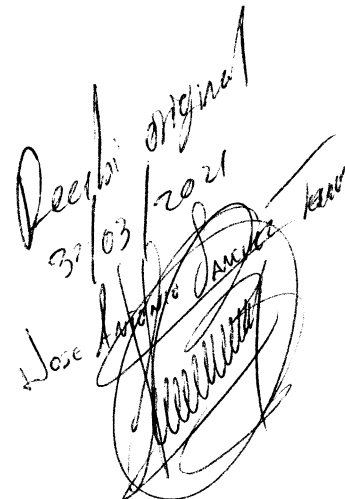 Recibi original
/03/2021
Jose Antonio Sanchez